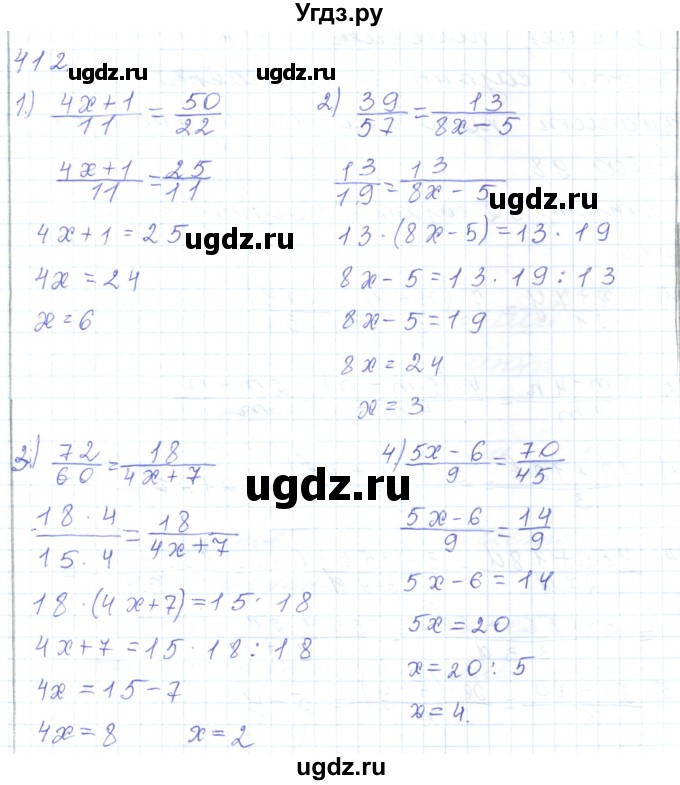 Угдз.ру
412
1) (4x+1)/11 = 50/22
(4x+1)/11 = 25/11
4x+1=25
4x=24
x=6
2) 39/57 = 13/(8x-5)
13/19 = 13/(8x-5)
13·(8x-5)=13·19
8x-5=13·19:13
8x-5=19
8x=24
x=3
3) 72/60 = 18/(4x+7)
(18·4)/(15·4) = 18/(4x+7)
18·(4x+7)=15·18
4x+7=15·18:18
4x=15-7
4x=8 x=2
4) (5x-6)/9 = 70/45
(5x-6)/9 = 14/9
5x-6=14
5x=20
x=20:5
x=4.
ugdz.ru
ugdz.ru
ugdz.ru
ugdz.ru
ugdz.ru
ugdz.ru
ugdz.ru